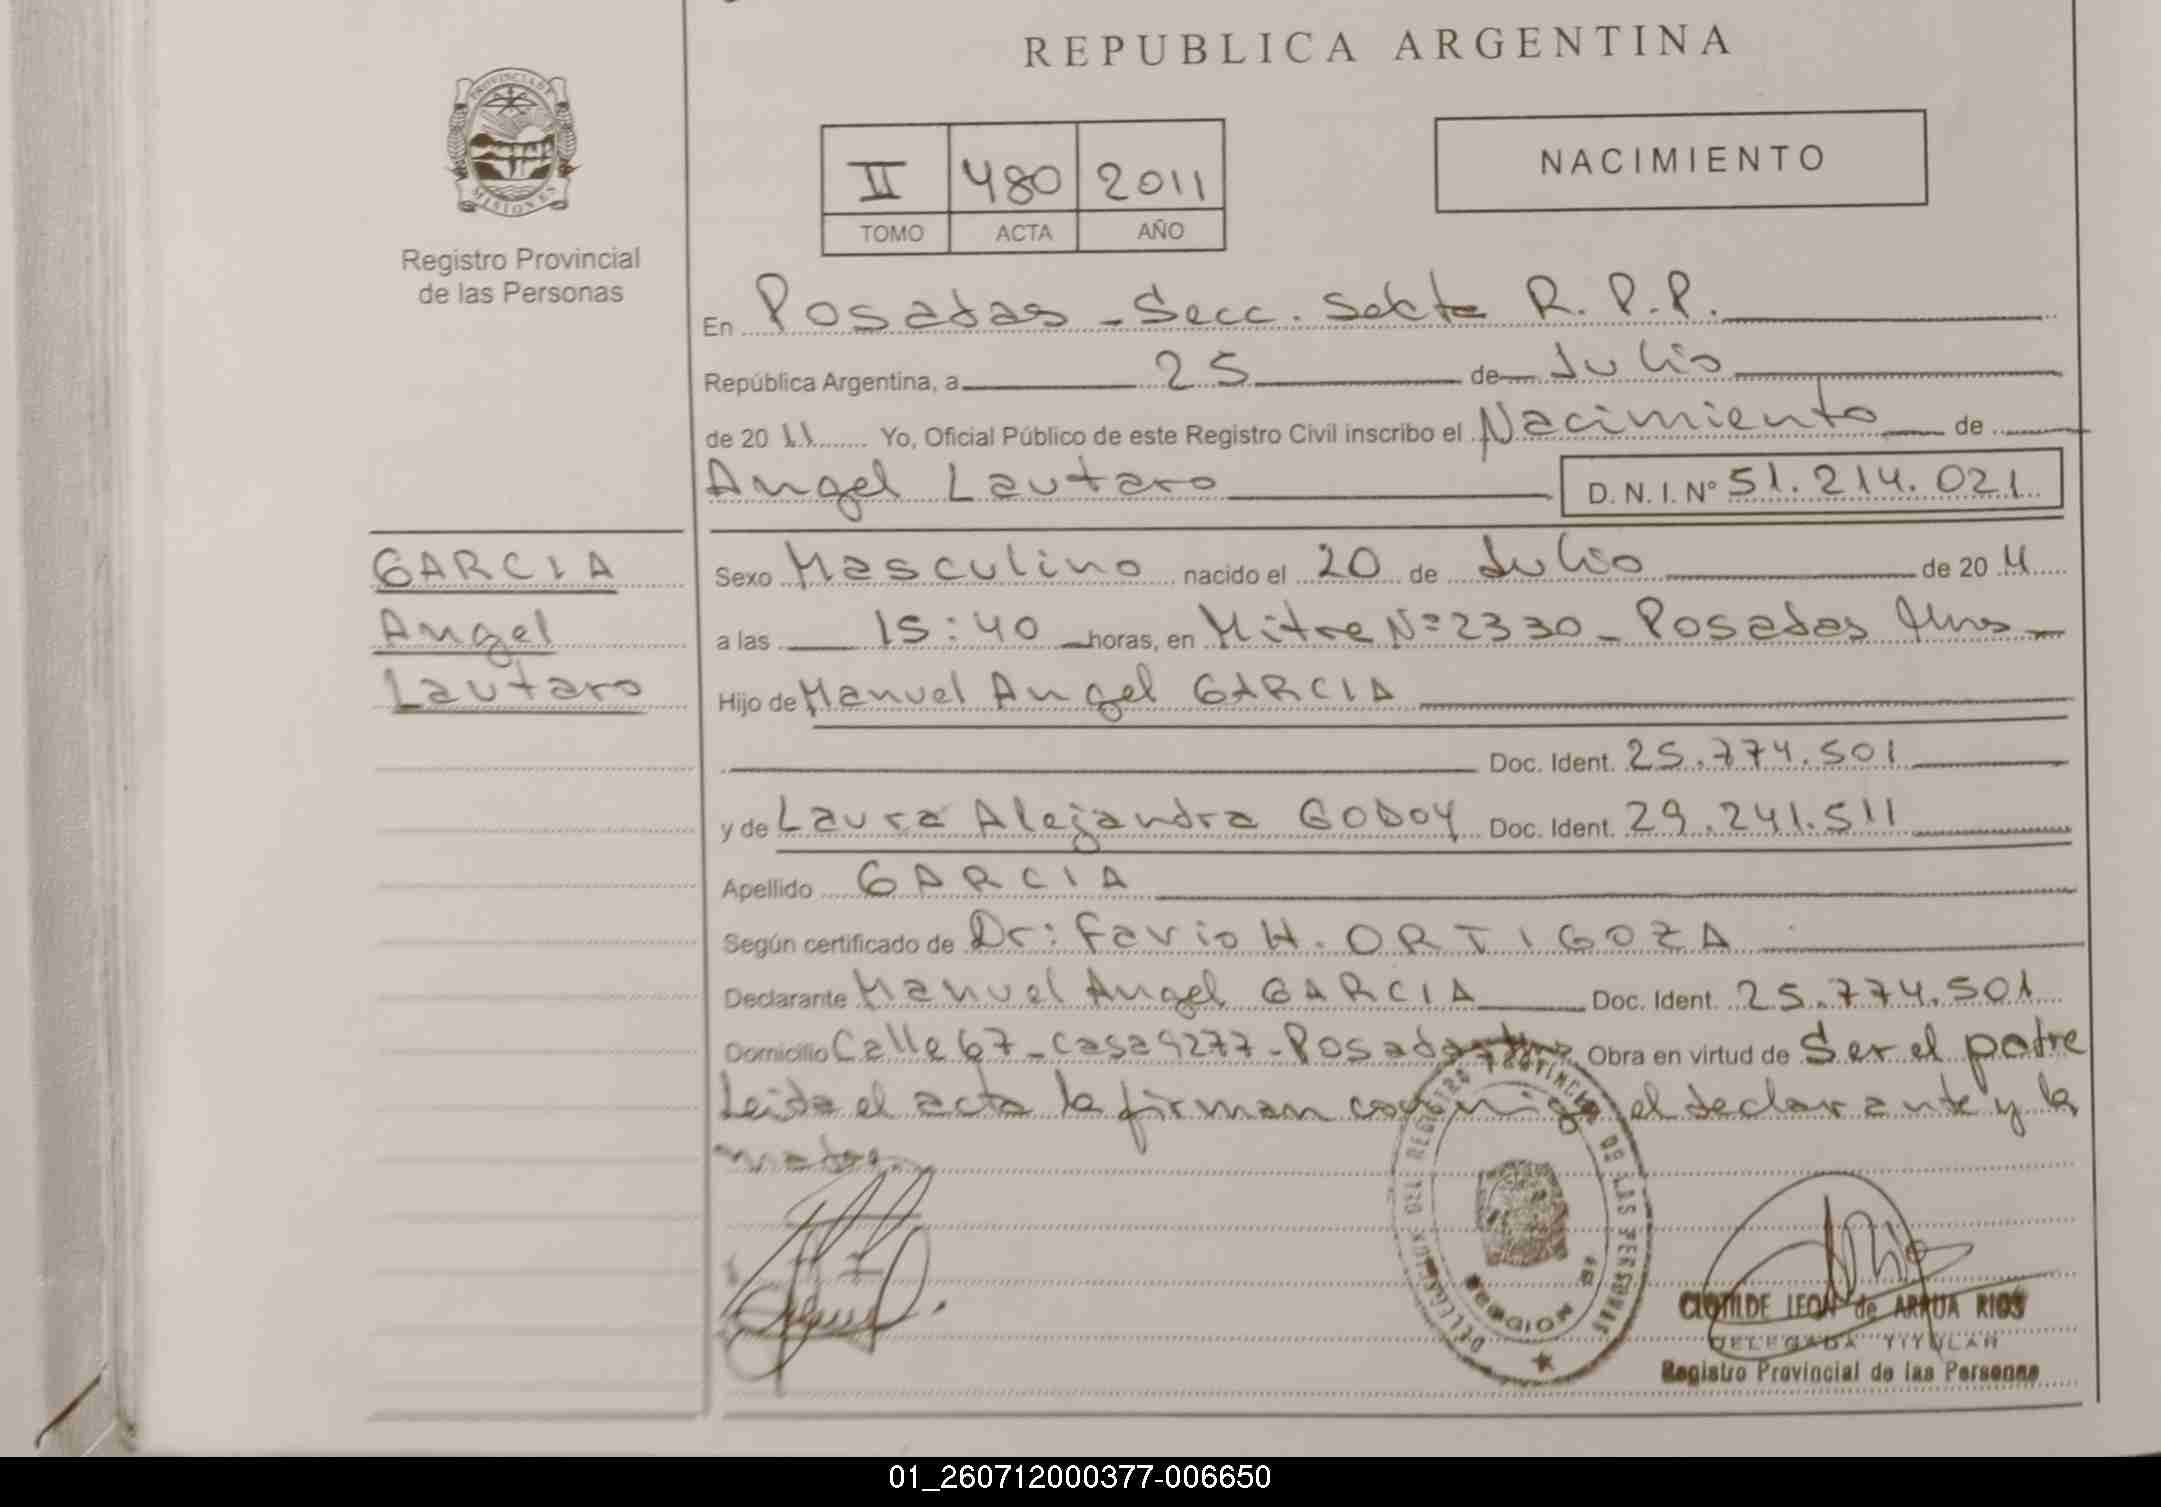 REPUBLICA ARGENTINA
PROVINCIA DE MISIONES
Registro Provincial
de las Personas
II 480 2011
TOMO ACTA AÑO
NACIMIENTO
En Posadas - Secc. Sexta R. P. P.
República Argentina, a 25 de Julio
de 2011 Yo, Oficial Público de este Registro Civil inscribo el Nacimiento de
Angel Lautaro D. N. I. Nº 51.214.021
GARCIA
Angel
Lautaro
Sexo Masculino nacido el 20 de Julio de 2011
a las 15:40 horas, en Mitre Nº 2330 - Posadas Mnes
Hijo de Manuel Angel GARCIA
Doc. Ident. 25.774.501
y de Laura Alejandra GODOY Doc. Ident. 29.241.511
Apellido GARCIA
Según certificado de Dr: Favio H. ORTIGOZA
Declarante Manuel Angel GARCIA Doc. Ident. 25.774.501
Domicilio Calle 67 - casa 9277 - Posadas Obra en virtud de Ser el padre
Leida el acta la firman conmigo el declarante y la
madre.
REGISTRO PROVINCIAL DE LAS PERSONAS
CLOTILDE LEON de ARRUA RIOS
DELEGADA TITULAR
Registro Provincial de las Personas
01_260712000377-006650